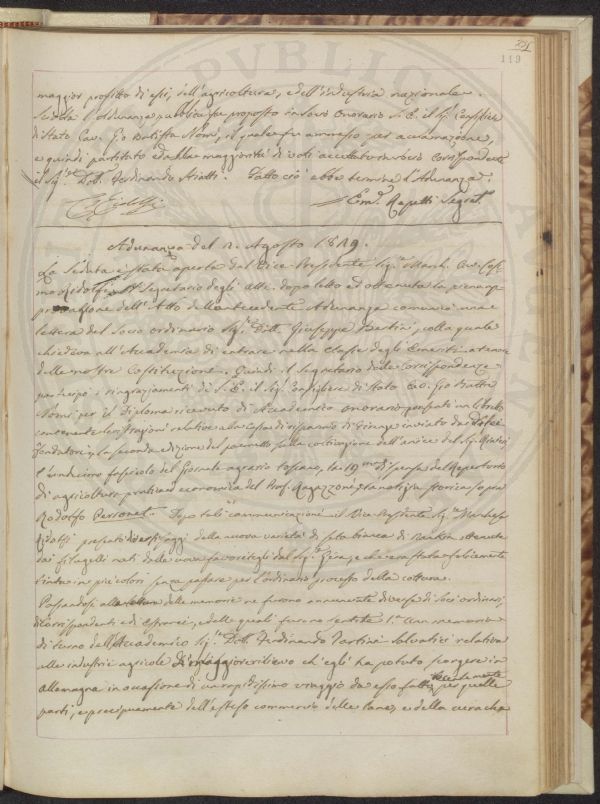 119
maggior profitto di essi, dell'agricoltura, e dell'industria nazionale.
Sciolta l'adunanza pubblica fu proposto in Socio Onorario S. E. il Sig. Consigliere
di Stato Cav. Gio Batista Nomi, il quale fu ammesso per acclamazione,
e quindi partitato ed alla maggiorità di voti accettato in Socio Corrispondente
il Sig. Dott. Ferdinando. Fatto ciò ebbe termine l'Adunanza.
C. Ridolfi Em. Repetti Segret.
Adunanza del 2. Agosto 1829.
La Seduta è stata aperta dal Vice-Presidente Sig. March. Cav. Cosimo
Ridolfi Segretario degli Atti. dopo letto ed ottenuta la piena
approvazione dell'Atto della antecedente Adunanza comunicò una
lettera del Socio ordinario Sig. Dott. Giuseppe Bertini, colla quale
chiedeva all'Accademia di entrare nella Classe degli Emeriti a tenore
delle nostre Costituzioni. Quindi il Segretario delle Corrispondenze
partecipò i ringraziamenti di S. E. il Sig. Consigliere di Stato Cav. Gio Batista
Nomi per il Diploma ricevuto di Accademico onorario; presentò un libretto
contenente le istruzioni relative alla Cassa di risparmio di Firenze inviato dai
Fondatori, la seconda edizione del poemetto sulla coltivazione dell'
l'undicesimo fascicolo del Giornale agrario toscano, la 19 dispensa del Repertorio
di agricoltura pratica ed economica del Prof. Ragazzoni, la notizia storica sopra
Rodolfo Personet. Dopo tali comunicazioni il Vice-Presidente Sig. Marchese
Ridolfi presentò diversi saggi della nuova varietà di seta bianca di ottenuta
dai filugelli nati dalle uova favoritegli dal Sig. e che era stata felicemente
tinta in più colori senza passare per l'ordinario processo della cottura.
Passandosi alla lettura delle memorie ne furono annunziate diverse di Soci ordinari,
di Corrispondenti ed, e delle quali furono sentite 1.a Una memoria
di turno dell'Accademico Sig. Dott. Ferdinando Tartini Salvatici relativa
alle industrie agricole di maggior rilievo ch'egli ha potuto scorgere in
Allemagna in occasione di un rapidissimo viaggio da esso fatto recentemente per quelle
parti, e precipuamente dell'esteso commercio delle lane, e della cura che